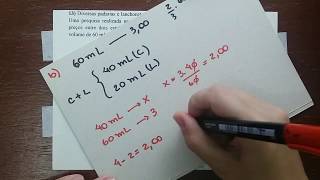 Diversas padarias e lanchone
Uma pesquisa realizada
preços entre dois es
volume de 60 ml
60 mL — 3,00
b)
C+L { 40 mL (C)
20 mL (L)
40 mL → x
60 mL → 3
x = 3.40/60 = 2,00
4-2=2,00
2.
3